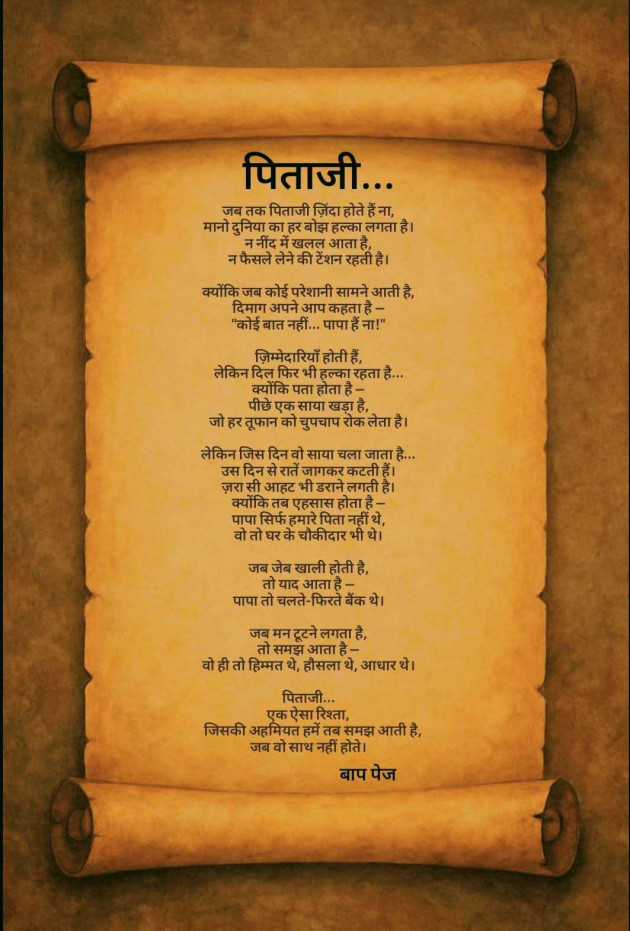 पिताजी...
जब तक पिताजी ज़िंदा होते हैं ना,
मानो दुनिया का हर बोझ हल्का लगता है।
न नींद में खलल आता है,
न फैसले लेने की टेंशन रहती है।
क्योंकि जब कोई परेशानी सामने आती है,
दिमाग अपने आप कहता है –
"कोई बात नहीं... पापा हैं ना!"
ज़िम्मेदारियाँ होती हैं,
लेकिन दिल फिर भी हल्का रहता है...
क्योंकि पता होता है –
पीछे एक साया खड़ा है,
जो हर तूफान को चुपचाप रोक लेता है।
लेकिन जिस दिन वो साया चला जाता है...
उस दिन से रातें जागकर कटती हैं।
ज़रा सी आहट भी डराने लगती है।
क्योंकि तब एहसास होता है –
पापा सिर्फ हमारे पिता नहीं थे,
वो तो घर के चौकीदार भी थे।
जब जेब खाली होती है,
तो याद आता है –
पापा तो चलते-फिरते बैंक थे।
जब मन टूटने लगता है,
तो समझ आता है –
वो ही तो हिम्मत थे, हौसला थे, आधार थे।
पिताजी...
एक ऐसा रिश्ता,
जिसकी अहमियत हमें तब समझ आती है,
जब वो साथ नहीं होते।
बाप पेज